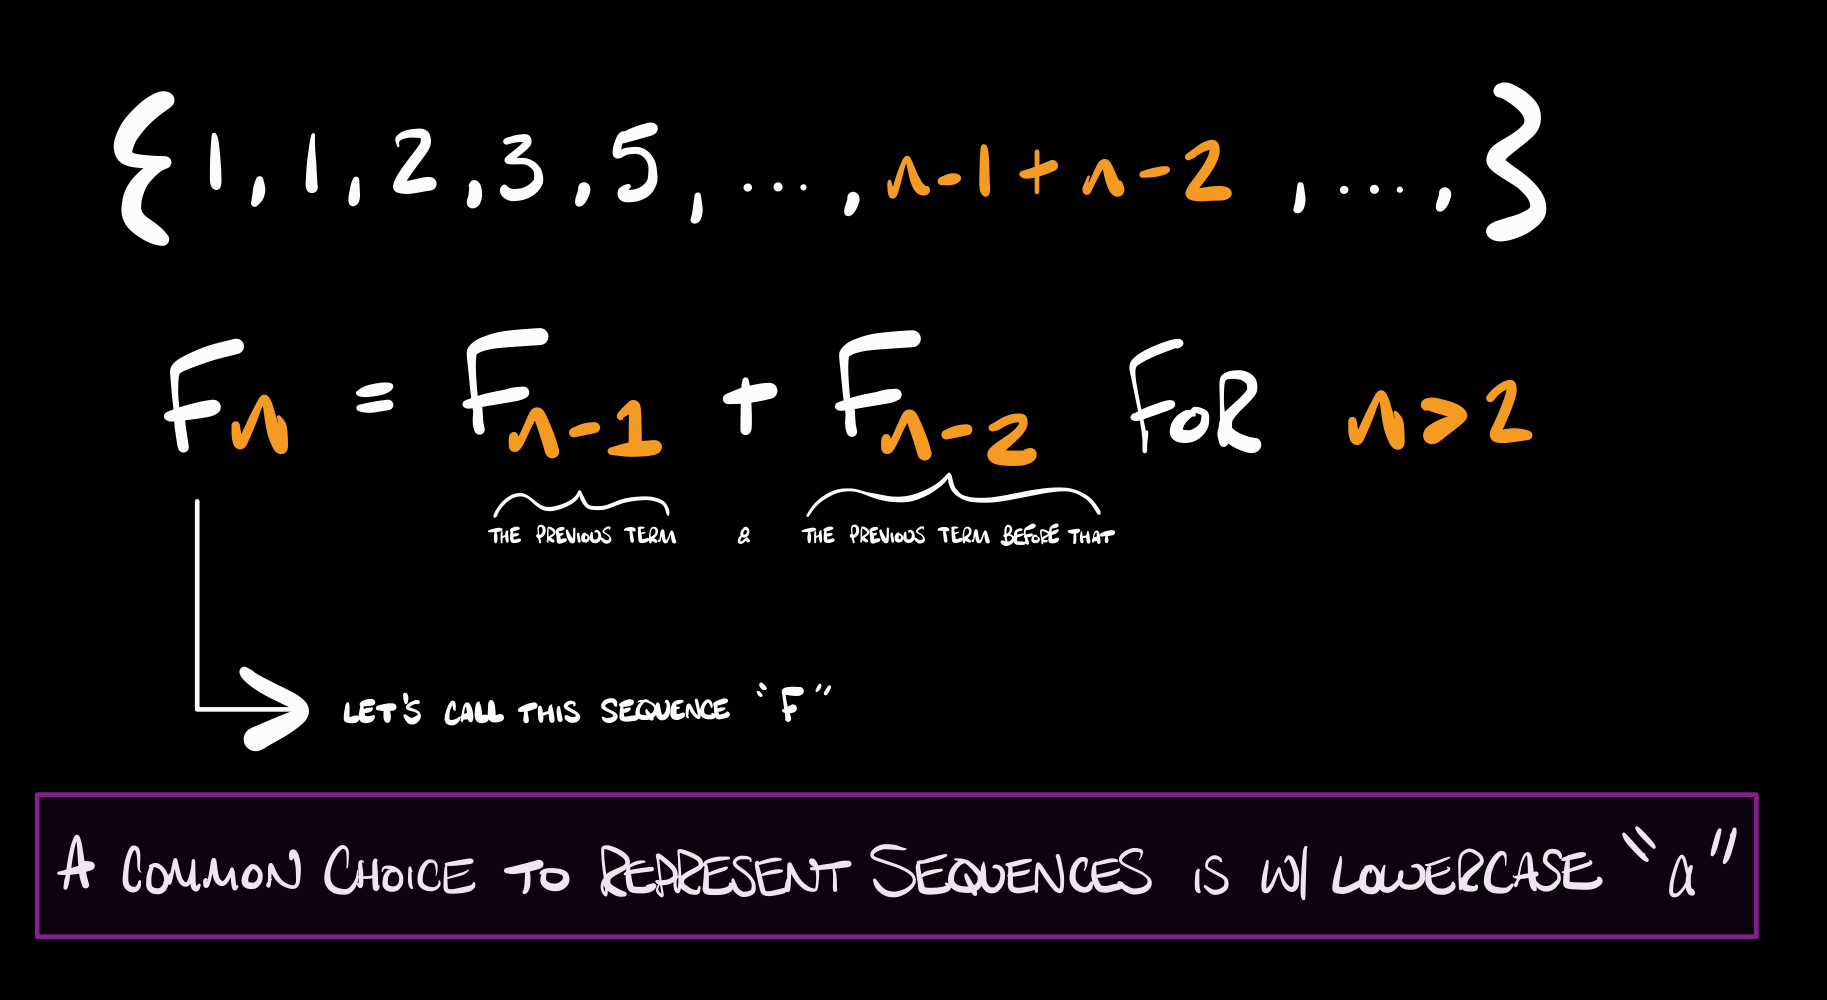 {1, 1, 2, 3, 5, ..., n-1 + n-2, ..., }
Fn = Fn-1 + Fn-2 FOR n>2
THE PREVIOUS TERM & THE PREVIOUS TERM BEFORE THAT
LET'S CALL THIS SEQUENCE "F"
A COMMON CHOICE TO REPRESENT SEQUENCES IS W/ LOWERCASE "a"